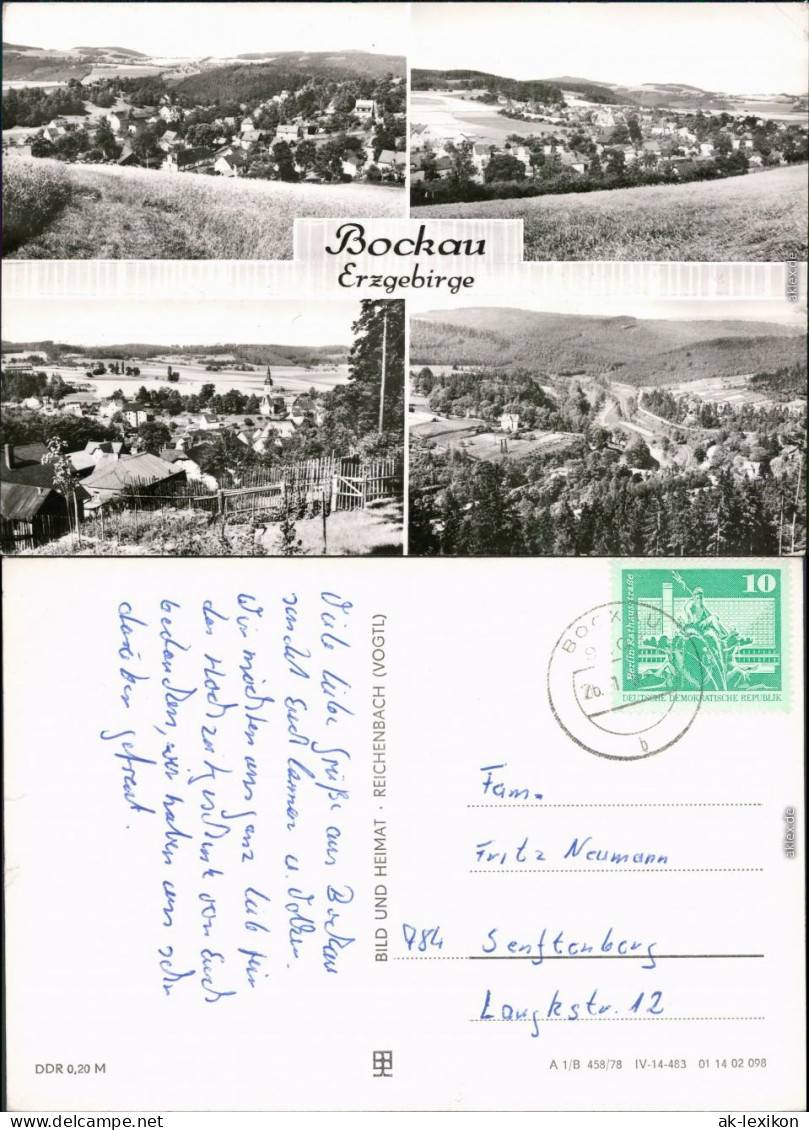 Bockau
Erzgebirge
aklex.de
10
Berlin Rathausstraße
DEUTSCHE DEMOKRATISCHE REPUBLIK
BOCKAU
26.
b
Viele liebe Grüße aus Bockau
sendet Euch u. Volker.
Wir möchten uns ganz lieb für
das Hochzeitgeschenk von Euch
bedanken, wir haben uns sehr
darüber gefreut.
BILD UND HEIMAT · REICHENBACH (VOGTL)
Fam.
Fritz Neumann
784 Senftenberg
Langkstr. 12
aklex.de
DDR 0,20 M
A 1/B 458/78 IV-14-483 01 14 02 098
Los-Nr:AK111906
ak-lexikon